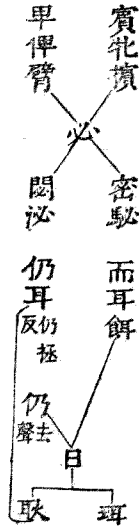 賓牝擯
卑俾臂
必
密駜
閟泌
而耳餌
仍耳
仍極反
仍去聲
日
珥